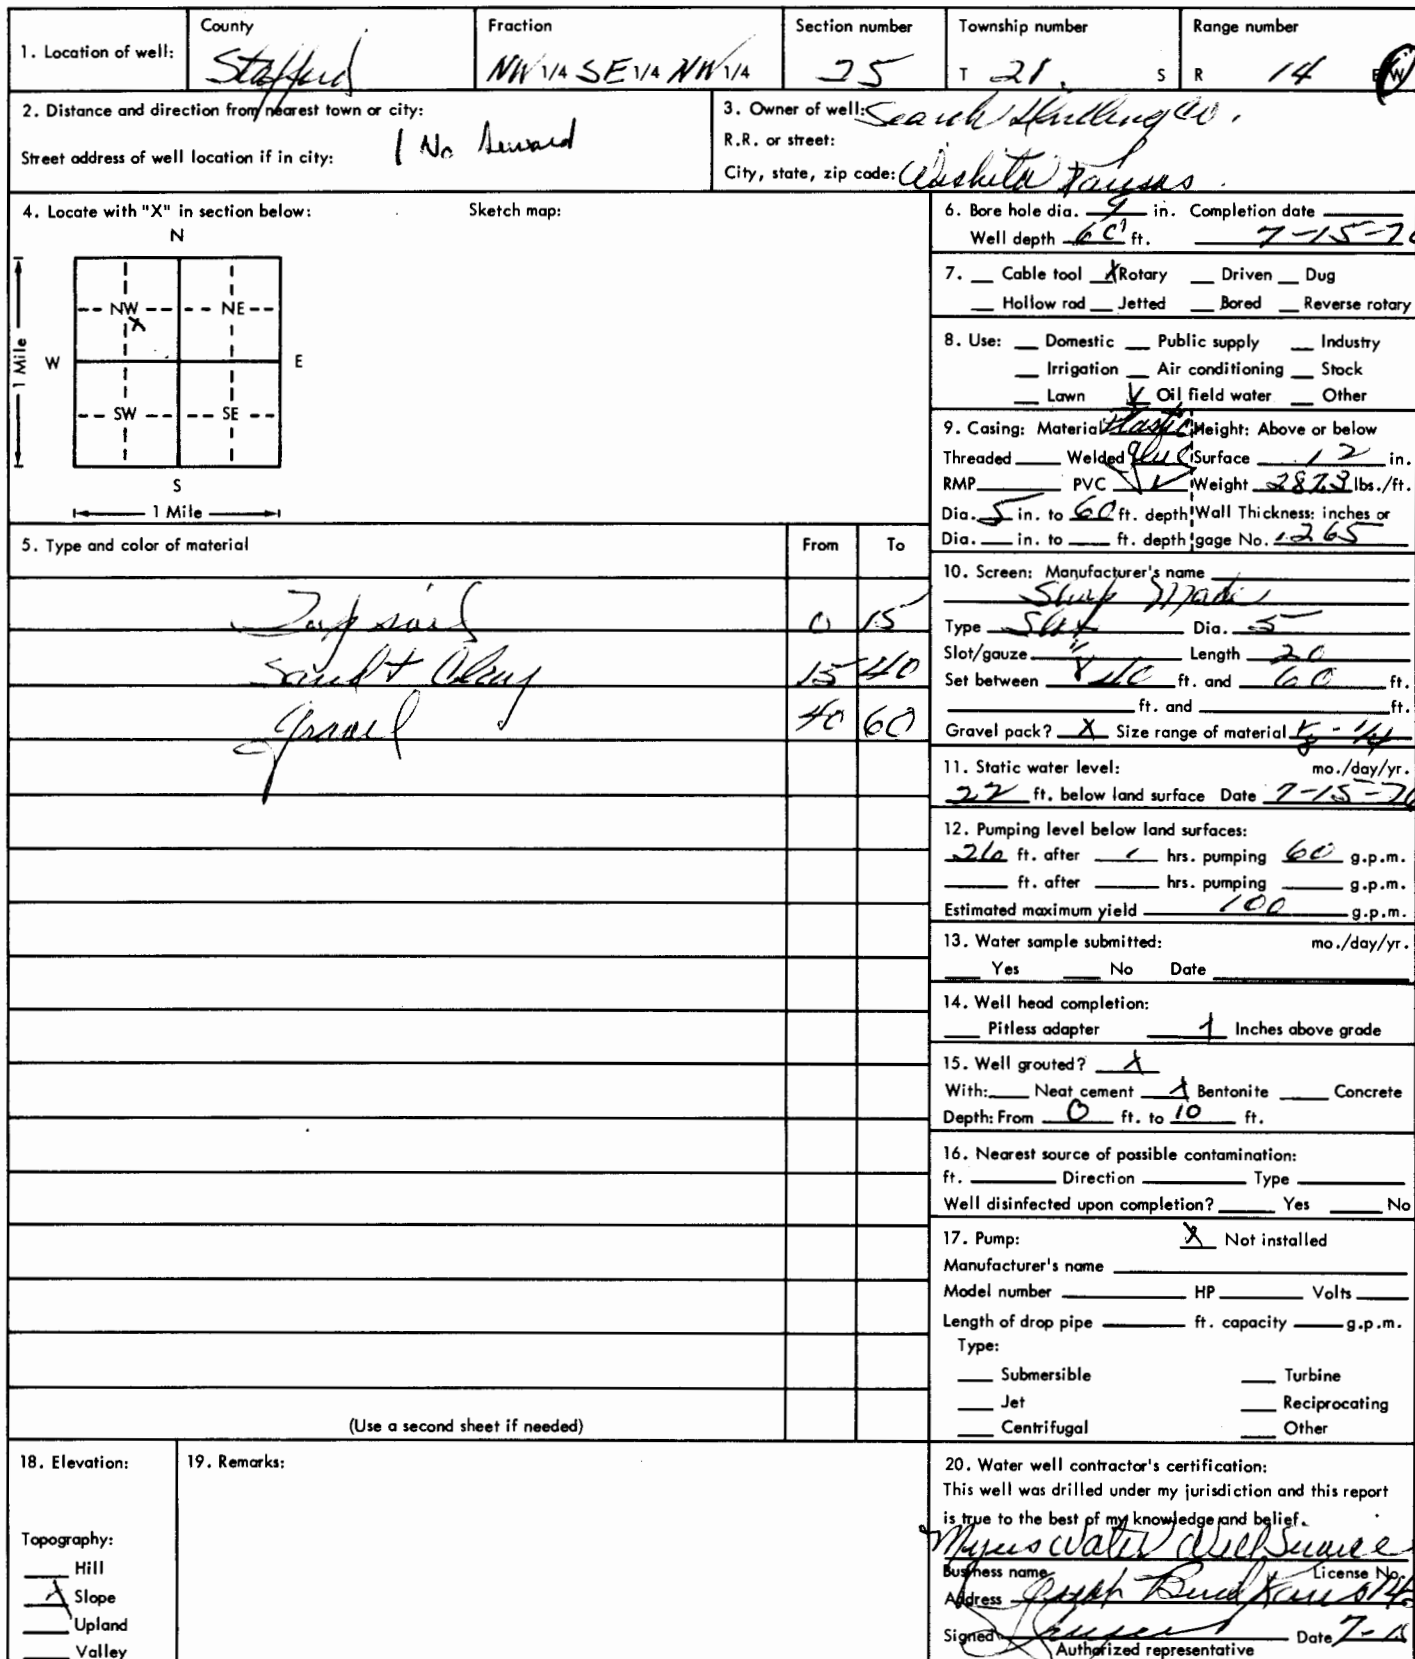 1. Location of well:
County
Stafford
Fraction
NW 1/4 SE 1/4 NW 1/4
Section number
25
Township number
T 21 S
Range number
R 14 E W
2. Distance and direction from nearest town or city:
1 No Seward
Street address of well location if in city:
3. Owner of well: Search Drilling Co.
R.R. or street:
City, state, zip code: Wichita Kansas
4. Locate with "X" in section below:
Sketch map:
N
NW NE
X
W E
1 Mile
SW SE
S
1 Mile
5. Type and color of material From To
Top soil 0 15
Sand + Clay 15 40
gravel 40 60
(Use a second sheet if needed)
6. Bore hole dia. 9 in. Completion date
Well depth 60' ft. 7-15-76
7. Cable tool X Rotary Driven Dug
Hollow rod Jetted Bored Reverse rotary
8. Use: Domestic Public supply Industry
Irrigation Air conditioning Stock
Lawn ✓ Oil field water Other
9. Casing: Material Plastic Height: Above or below
Threaded Welded glue Surface 12 in.
RMP PVC ✓ Weight 287.3 lbs./ft.
Dia. 5 in. to 60 ft. depth Wall Thickness: inches or
Dia. in. to ft. depth gage No. .265
10. Screen: Manufacturer's name
Shop Made
Type Dia. 5
Slot/gauze Length 20
Set between 40 ft. and 60 ft.
ft. and ft.
Gravel pack? X Size range of material 1/8 - 1/4
11. Static water level: mo./day/yr.
22 ft. below land surface Date 7-15-76
12. Pumping level below land surfaces:
26 ft. after 1 hrs. pumping 60 g.p.m.
ft. after hrs. pumping g.p.m.
Estimated maximum yield 100 g.p.m.
13. Water sample submitted: mo./day/yr.
Yes No Date
14. Well head completion:
Pitless adapter 1 Inches above grade
15. Well grouted? X
With: Neat cement X Bentonite Concrete
Depth: From 0 ft. to 10 ft.
16. Nearest source of possible contamination:
ft. Direction Type
Well disinfected upon completion? Yes No
17. Pump: X Not installed
Manufacturer's name
Model number HP Volts
Length of drop pipe ft. capacity g.p.m.
Type:
Submersible Turbine
Jet Reciprocating
Centrifugal Other
18. Elevation:
Topography:
Hill
X Slope
Upland
Valley
19. Remarks:
20. Water well contractor's certification:
This well was drilled under my jurisdiction and this report
is true to the best of my knowledge and belief.
Myers Water Well Service
Business name License No.
Address Great Bend Kans 14
Signed Date 7-15
Authorized representative